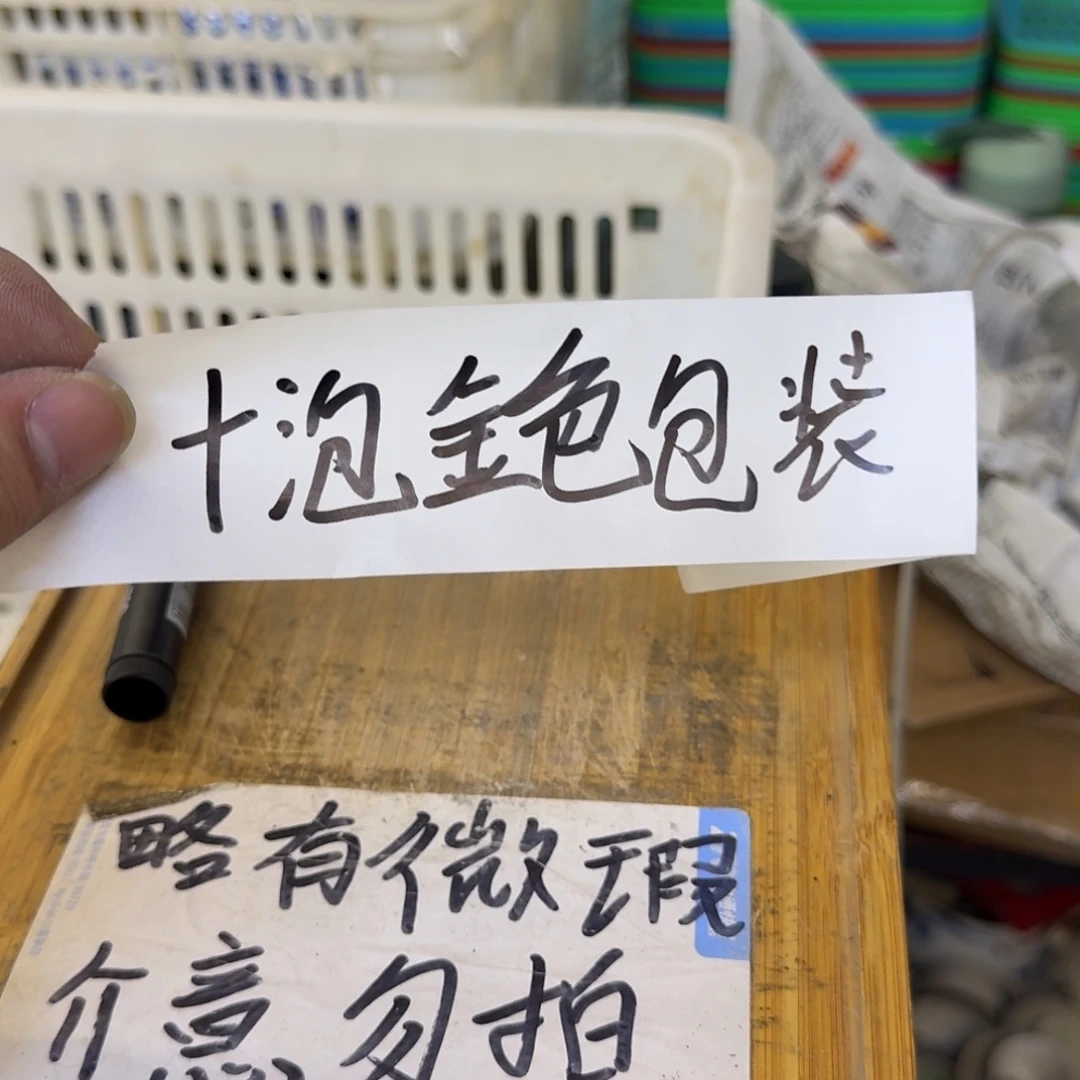 十泡金色包装
略有微瑕
介意勿拍